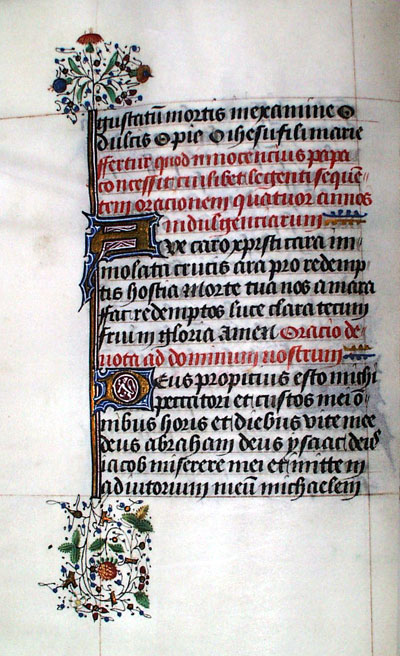 gustatū mortis in examine O
dulcis O pie O ihesu fili marie
ffertur quod innocencius papa
concessit cuilibet legenti sequē
tem oracionem quatuor annos
indulgenciarum
Ave caro xpristi cara im
molata crucis ara pro redemp
tis hostia Morte tua nos amara
ffac redemptos luce clara tecum
frui in gloria Amen Oracio de
vota ad dominum nostrum
Deus propitius esto michi
peccatori et custos mei ō
nibus horis et diebus vite mee
deus abraham deus ysaac deus
iacob miserere mei et mitte in
adiutorium meū michaelem